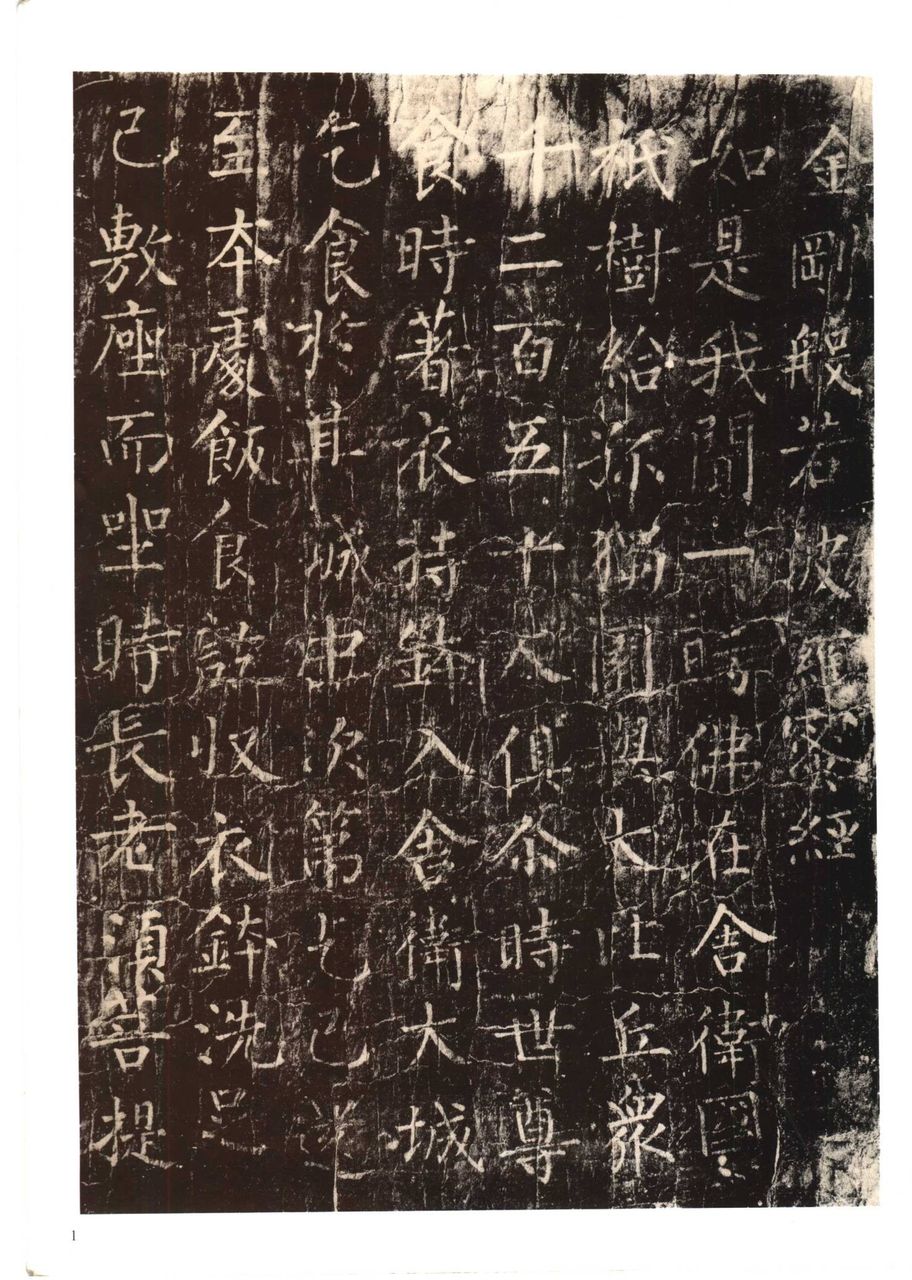 金剛般若波羅蜜經
如是我聞一時佛在舍衛國
祇樹給孤獨園與大比丘衆
千二百五十人俱尒時世尊
食時著衣持鉢入舍衛大城
乞食於其城中次第乞已還
至本處飯食訖收衣鉢洗足
已敷座而坐時長老須菩提
1